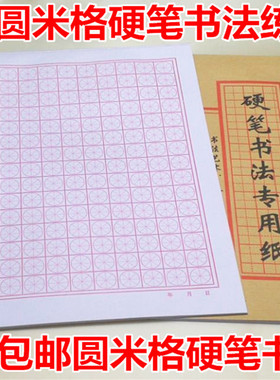 圆米格硬笔书法练
硬笔书法专用纸
年 月 日
包邮圆米格硬笔书